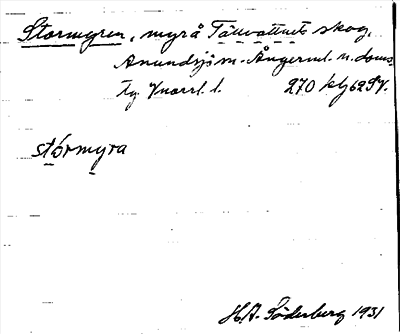 Stormyren, myr å Tällvattnets skog,
Anundsjö sn. Ångerml. n. doms
tg Vnorrl. l. 270 kbj 62 SV.
stórmyra
H.A. Söderberg 1931